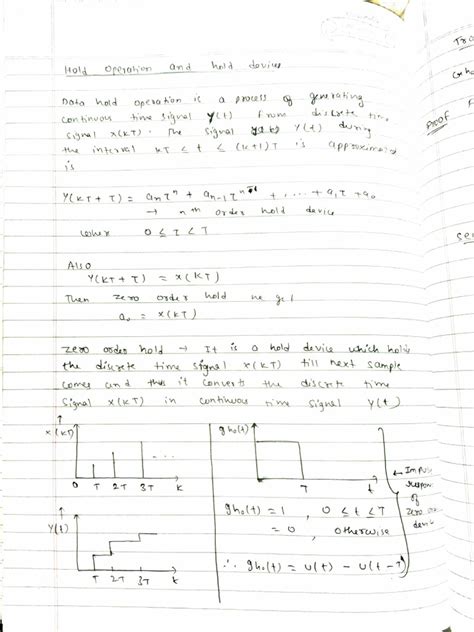 Hold operation and hold devices
Data hold operation is a process of generating
continuous time signal y(t) from discrete time
signal x(kT). The signal y(t) during
the interval kT ≤ t ≤ (k+1)T is approximated
is
Y(kT + τ) = anτ^n + an-1τ^n-1 + ..... + a1τ + a0
→ nth order hold device
where 0 ≤ τ < T
Also
Y(kT + τ) = x(kT)
Then zero order hold we get
a0 = x(kT)
zero order hold → It is a hold device which holds
the discrete time signal x(kT) till next sample
comes and thus it converts the discrete time
signal x(kT) in continuous time signal y(t)
x(kT)
...
0 T 2T 3T k
y(t)
T 2T 3T k
gho(t)
T t
gho(t) = 1 , 0 ≤ t ≤ T
= 0 , otherwise
∴ gho(t) = u(t) - u(t-T)
← Impulse
of
zero
Proof